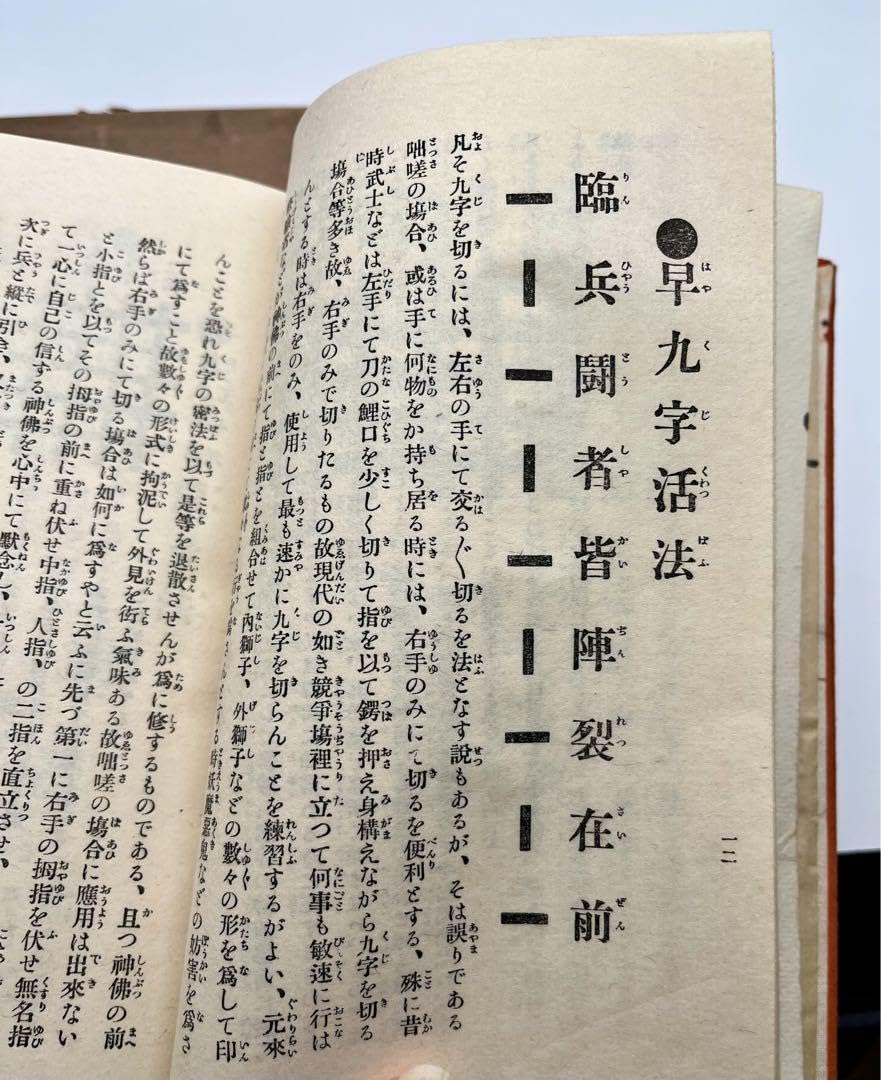 ●早九字活法
臨兵鬪者皆陣裂在前
凡そ九字を切るには、左右の手にて交る〴〵切るを法となす説もあるが、そは誤りである
咄嗟の塲合、或は手に何物をか持ち居る時には、右手のみにて切るを便利とする、殊に昔
時武士などは左手にて刀の鯉口を少しく切りて指を以て鍔を押え身構えながら九字を切る
塲合等多き故、右手のみで切りたるもの故現代の如き競爭塲裡に立つて何事も敏速に行は
んとする時は右手をのみ、使用して最も速かに九字を切らんことを練習するがよい、元來
神佛の前にて指と指とを組合せて內獅子、外獅子などの數々の形を爲して印
んとする時妖魔惡鬼などの妨害を爲さ
一二
んことを恐れ九字の密法を以て是等を退散させんが爲に修するものである、且つ神佛の前
にて爲すこと故數々の形式に拘泥して外見を衒ふ氣味ある故咄嗟の塲合に應用は出來ない
然らは右手のみにて切る塲合は如何に爲すやと云ふに先づ第一に右手の拇指を伏せ無名指
と小指とを以てその拇指の前に重ね伏せ中指、人指、の二指を直立させ、
て一心に自己の信する神佛を心中にて默念し、
次に兵と縱に引き、